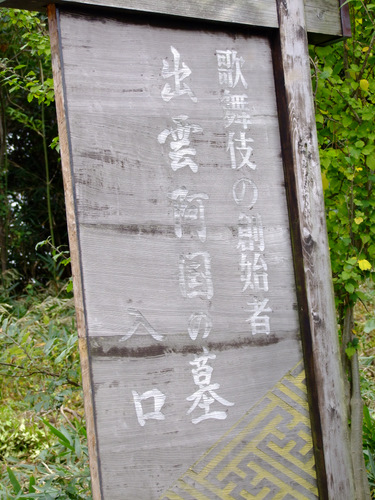 歌舞伎の創始者
出雲阿国の墓
入口